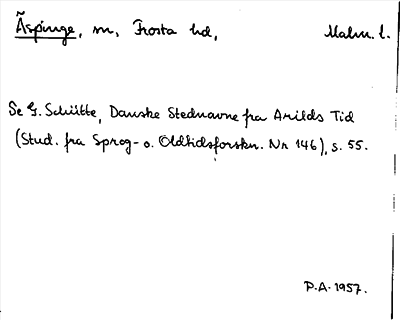 Äspinge, m, Frosta hd, Malm. l.
Se G. Schütte, Danske Stednavne fra Arilds Tid
(Stud. fra Sprog- o. Oldtidsforskn. Nr 146), s. 55.
P.A. 1957.